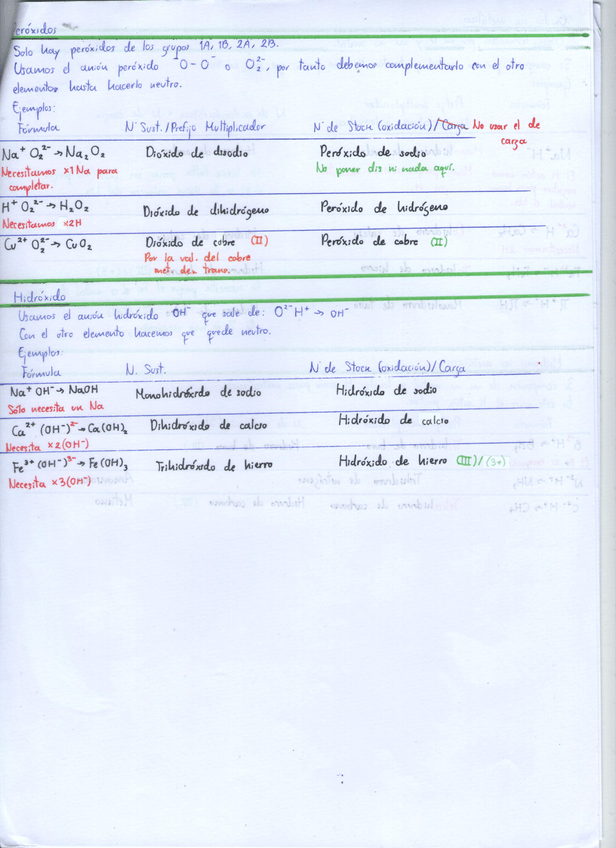 Peróxidos
Solo hay peróxidos de los grupos 1A, 1B, 2A, 2B.
Usamos el anión peróxido ⁻O-O⁻ o O₂²⁻, por tanto debemos complementarlo con el otro
elemento hasta hacerlo neutro.
Ejemplos:
Fórmula N. Sust./Prefijo Multiplicador N. de Stock (oxidación)/Carga No usar el de
carga
Na⁺ O₂²⁻ → Na₂O₂ Dióxido de disodio Peróxido de sodio
Necesitamos x1 Na para No poner dis ni nada aquí.
completar.
H⁺ O₂²⁻ → H₂O₂ Dióxido de dihidrógeno Peróxido de hidrógeno
Necesitamos x2H
Cu²⁺ O₂²⁻ → CuO₂ Dióxido de cobre (II) Peróxido de cobre (II)
Por la val. del cobre
met. de trans.
Hidróxido
Usamos el anión hidróxido OH⁻ que sale de: O²⁻H⁺ → OH⁻
Con el otro elemento hacemos que quede neutro.
Ejemplos:
Fórmula N. Sust. N. de Stock (oxidación)/Carga
Na⁺ OH⁻ → NaOH Monohidróxido de sodio Hidróxido de sodio
Sólo necesita un Na
Ca²⁺ (OH⁻)²⁻ → Ca(OH)₂ Dihidróxido de calcio Hidróxido de calcio
Necesita x2(OH⁻)
Fe³⁺ (OH⁻)³⁻ → Fe(OH)₃ Trihidróxido de hierro Hidróxido de hierro (III)/(3+)
Necesita x3(OH⁻)